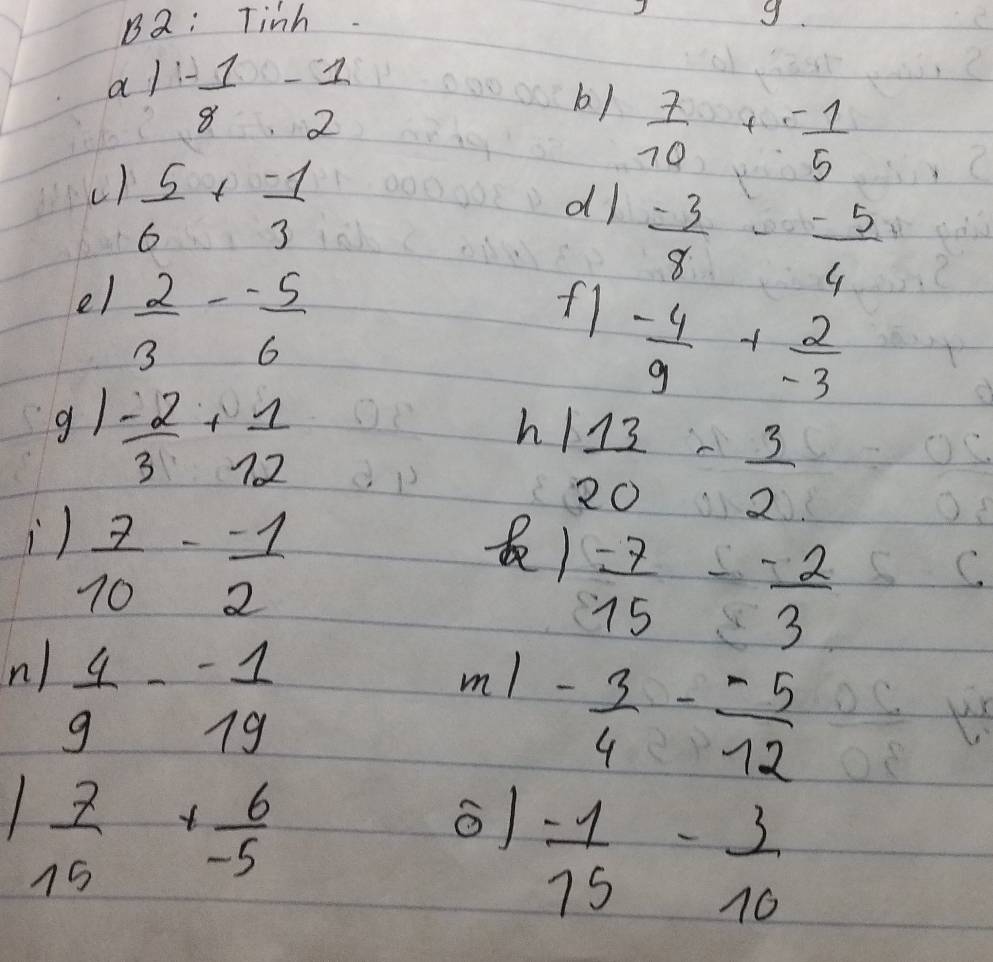 B2: Tính
a) -1/8 - 1/2
b) 7/10 + -1/5
c) 5/6 + -1/3
d) -3/8 - -5/4
e) 2/3 - -5/6
f) -4/9 + 2/-3
g) -2/3 + 1/12
h) 13/20 - 3/2
i) 7/10 - -1/2
k) -7/15 -2/3
n) 4/9 - -1/19
m) -3/4 - -5/12
) 7/15 + 6/-5
ô) -1/15 - 3/10